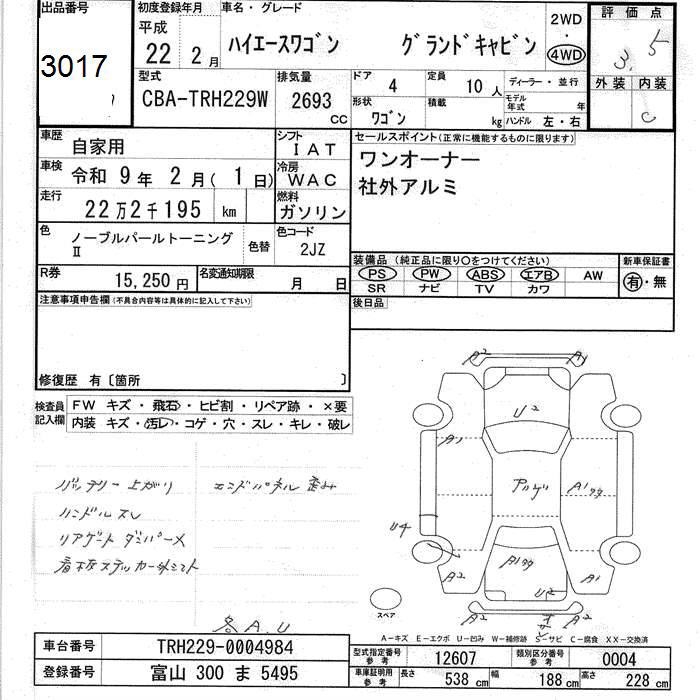 出品番号
3017
初度登録年月
平成
22 2月
車名・グレード
ハイエースワゴン グランドキャビン
2WD
・
4WD
評価点
3.5
外装 内装
C
型式
CBA-TRH229W
排気量
2693
CC
ドア
4
定員
10人
ディーラー・並行
形状
ワゴン
積載
kg
モデル年式 年
ハンドル 左・右
車歴
自家用
シフト
IAT
車検
令和 9年 2月( 1日)
冷房
WAC
走行
22万2千195 km
燃料
ガソリン
色
ノーブルパールトーニング
Ⅱ
色替
色コード
2JZ
R券
15,250円
名変通知期限
月 日
セールスポイント(正常に機能するものに限ります)
ワンオーナー
社外アルミ
装備品(純正品に限り〇をつけてください)
PS PW ABS エアB AW
SR ナビ TV カワ
新車保証書
有・無
後日品
注意事項申告欄(不具合内容等は具体的に記入して下さい)
修復歴 有〔箇所 〕
検査員
記入欄
FW キズ・飛石・ヒビ割・リペア跡・×要
内装 キズ・汚レ・コゲ・穴・スレ・キレ・破レ
バッテリー上がり エンドパネル歪み
ハンドルスレ
リアゲートダンパーメ
看板ステッカー外シミト
各A.U
A2 A1
U2
A1
アリゲ
A1タタ
U4
A1タタ
A2 A1
U2
A2 A2
スペア
A-キズ E-エクボ U-凹み W-補修跡 S-サビ C-腐食 XX-交換済
車台番号
TRH229-0004984
登録番号
富山 300 ま 5495
型式指定番号
参考
12607
類別区分番号
参考
0004
車庫証明用
参考
長さ 538 cm 幅 188 cm 高さ 228 cm